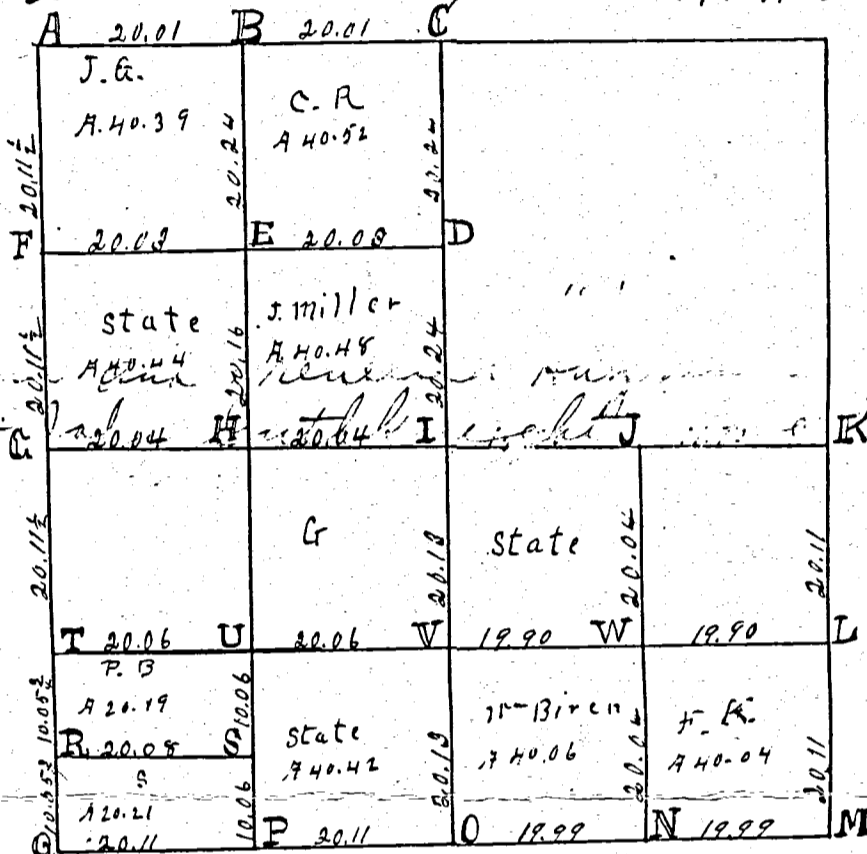 A 20.01 B 20.01 C
J.G.
A. 40.39
C. R
A 40.52
20.11½
20.24
20.24
F 20.03 E 20.03 D
State
A 40.44
J. Miller
A. 40.48
20.11½
20.16
20.24
G 20.04 H 20.04 I J K
G
State
20.11½
20.13
20.04
20.11
T 20.06 U 20.06 V 19.90 W 19.90 L
P. B
A 20.19
10.05¾
10.06
R 20.08 S
S
A 20.21
10.06
State
A 40.42
20.13
Biren
A 40.06
20.04
F. K.
A 40.04
20.11
Q 20.11 P 20.11 O 19.99 N 19.99 M